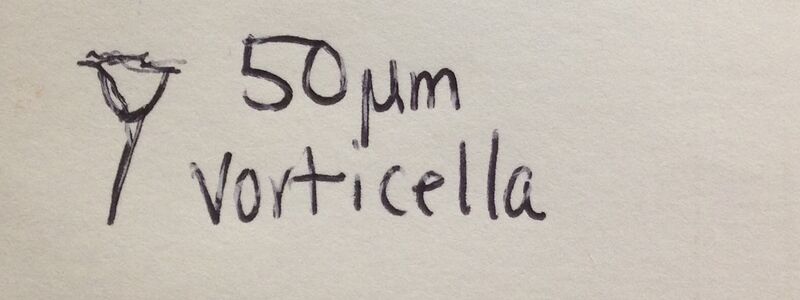 50µm
vorticella